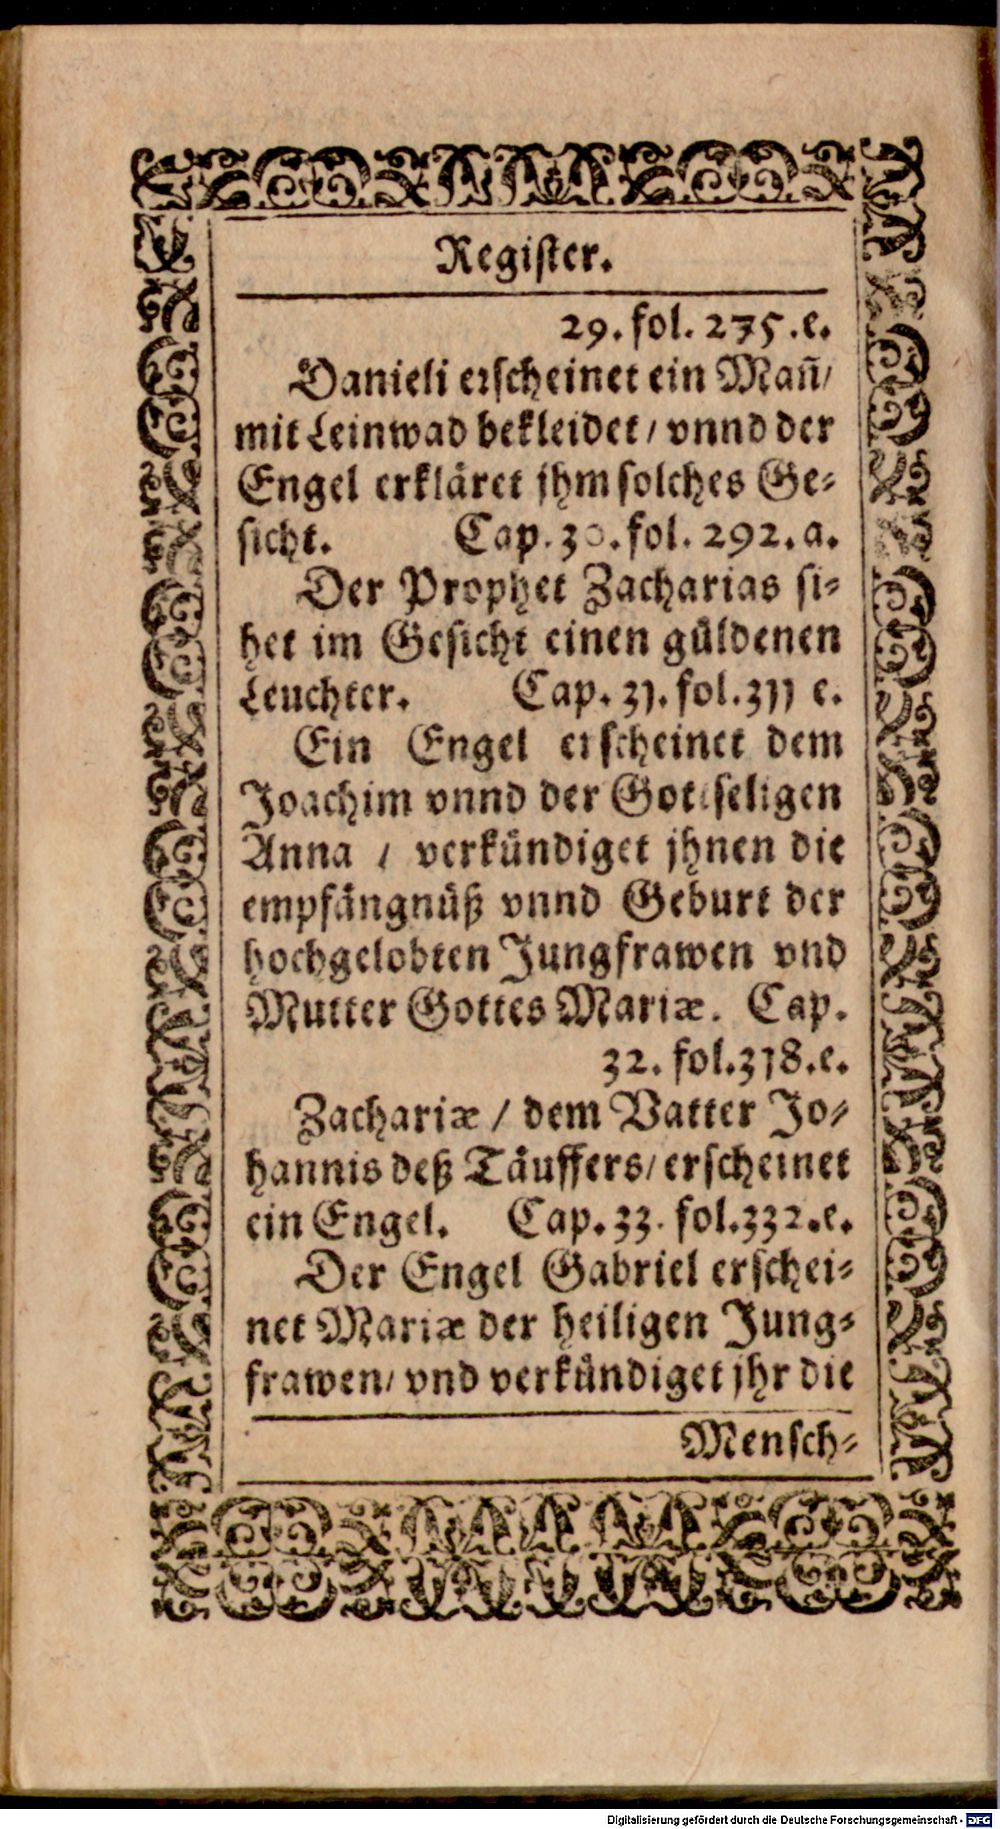 Register.
29. fol. 275.e.
Danieli erscheinet ein Mañ/
mit Leinwad bekleidet/ vnnd der
Engel erkläret jhm solches Ge⸗
sicht. Cap. 30. fol. 292. a.
Der Prophet Zacharias si⸗
het im Gesicht einen güldenen
Leuchter. Cap. 31. fol. 311 e.
Ein Engel erscheinet dem
Joachim vnnd der Gottseligen
Anna / verkündiget jhnen die
empfängnüß vnnd Geburt der
hochgelobten Jungfrawen vnd
Mutter Gottes Mariæ. Cap.
32. fol. 318.e.
Zachariæ / dem Vatter Jo⸗
hannis deß Täuffers/ erscheinet
ein Engel. Cap. 33. fol. 332.e.
Der Engel Gabriel erschei⸗
net Mariæ der heiligen Jung⸗
frawen/ vnd verkündiget jhr die
Mensch⸗
Digitalisierung gefördert durch die Deutsche Forschungsgemeinschaft - DFG